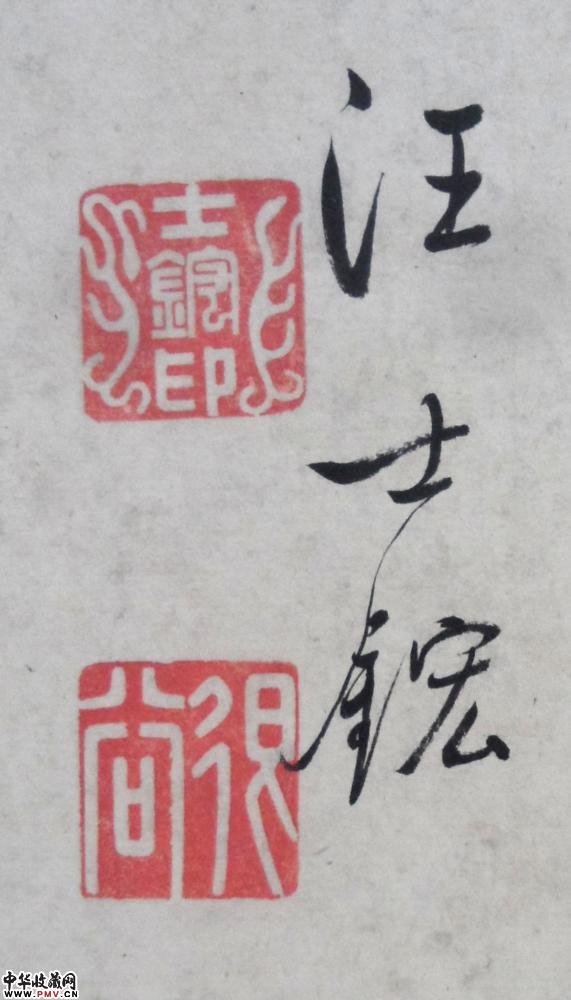 汪士鋐
士鋐印
退谷
中华收藏网
WWW.PMV.CN